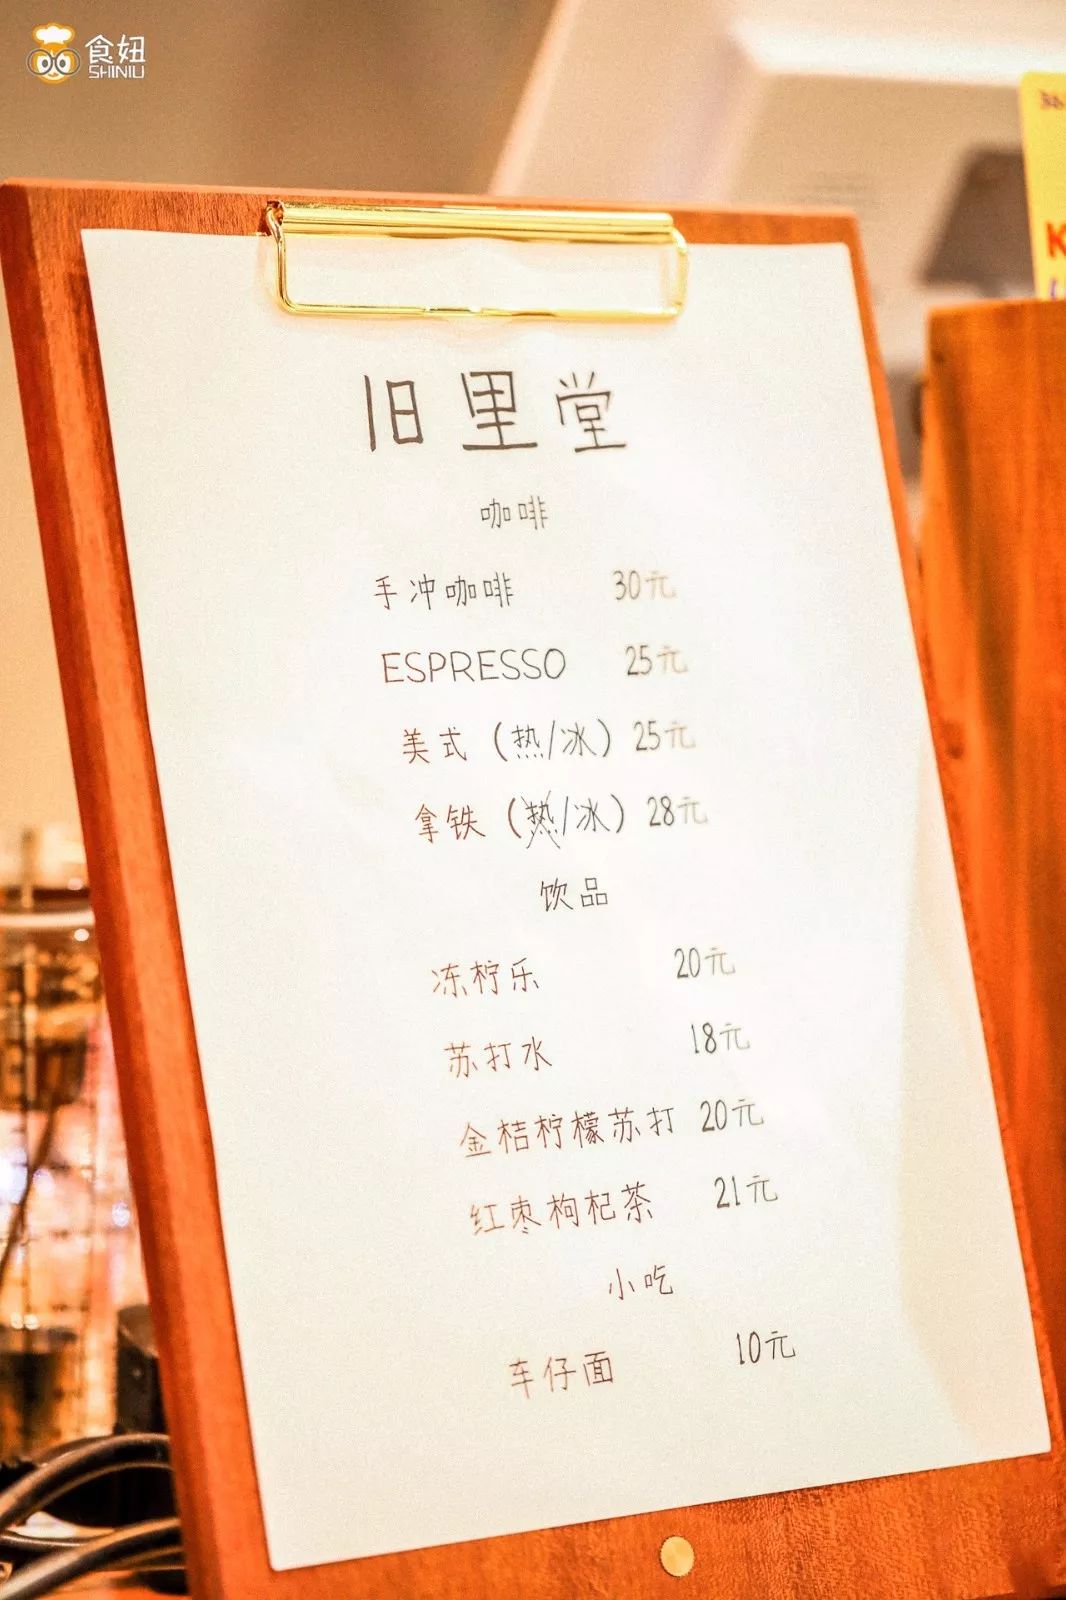 食妞
SHINIU
旧里堂
咖啡
手冲咖啡 30元
ESPRESSO 25元
美式（热/冰）25元
拿铁（热/冰）28元
饮品
冻柠乐 20元
苏打水 18元
金桔柠檬苏打 20元
红枣枸杞茶 21元
小吃
车仔面 10元